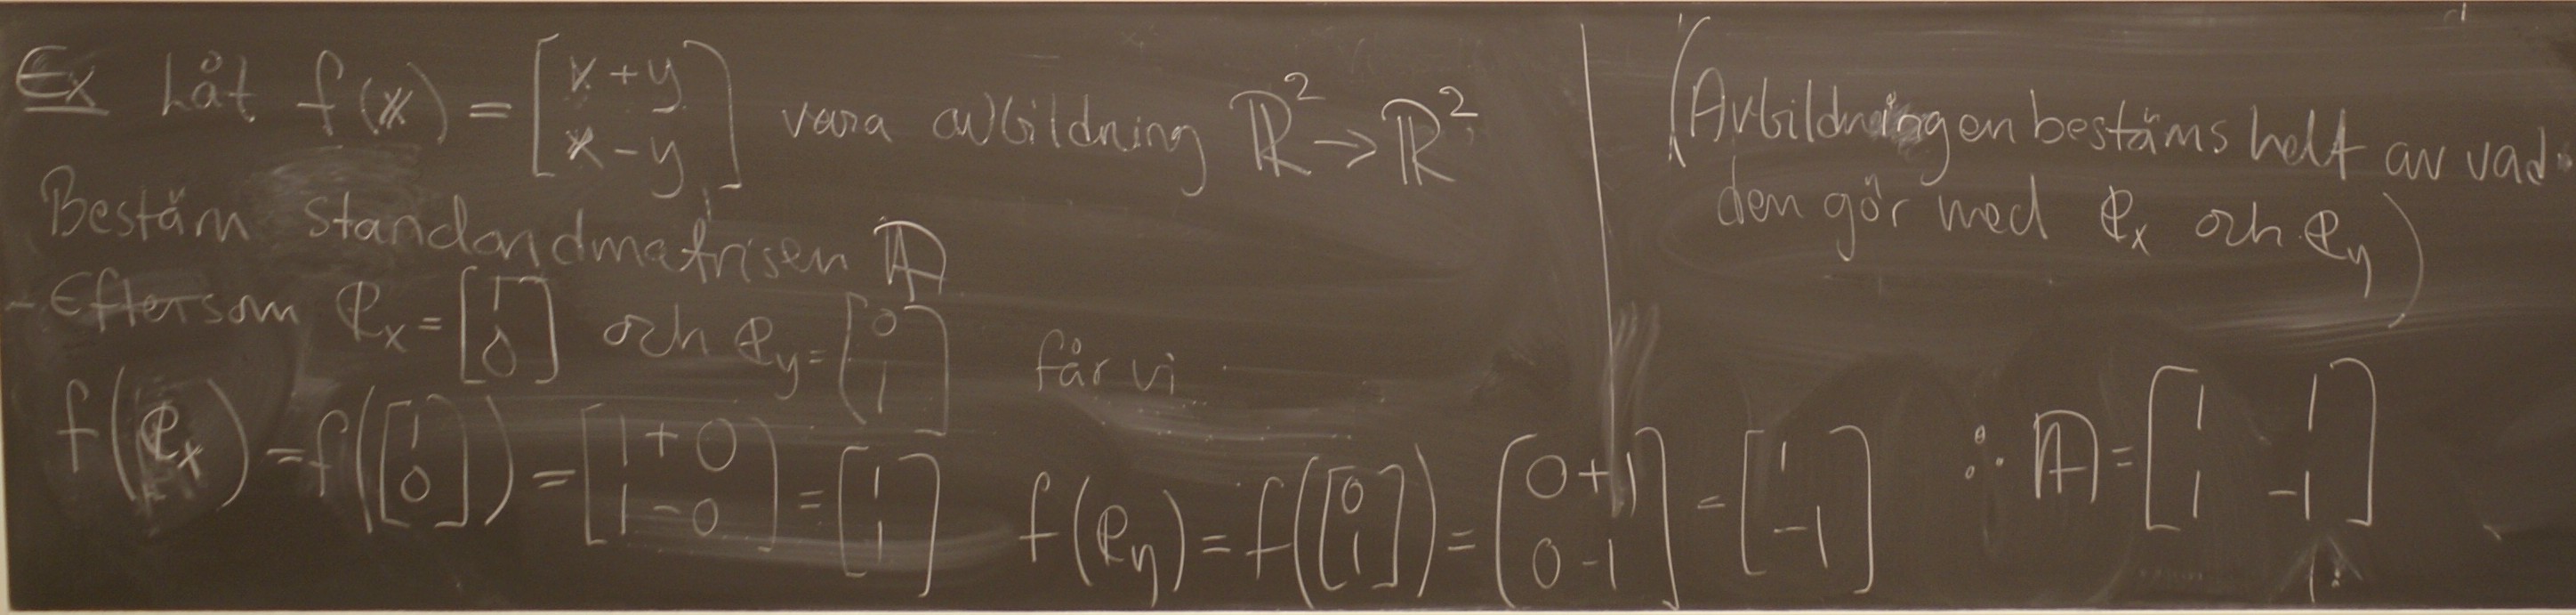 Ex Låt f(x) = [x+y; x-y] vara avbildning ℝ² → ℝ²
Bestäm standardmatrisen A
- Eftersom e_x = [1; 0] och e_y = [0; 1] får vi
f(e_x) = f([1; 0]) = [1+0; 1-0] = [1; 1] f(e_y) = f([0; 1]) = [0+1; 0-1] = [1; -1] ∴ A = [1 1; 1 -1]
(Avbildningen bestäms helt av vad
den gör med e_x och e_y)